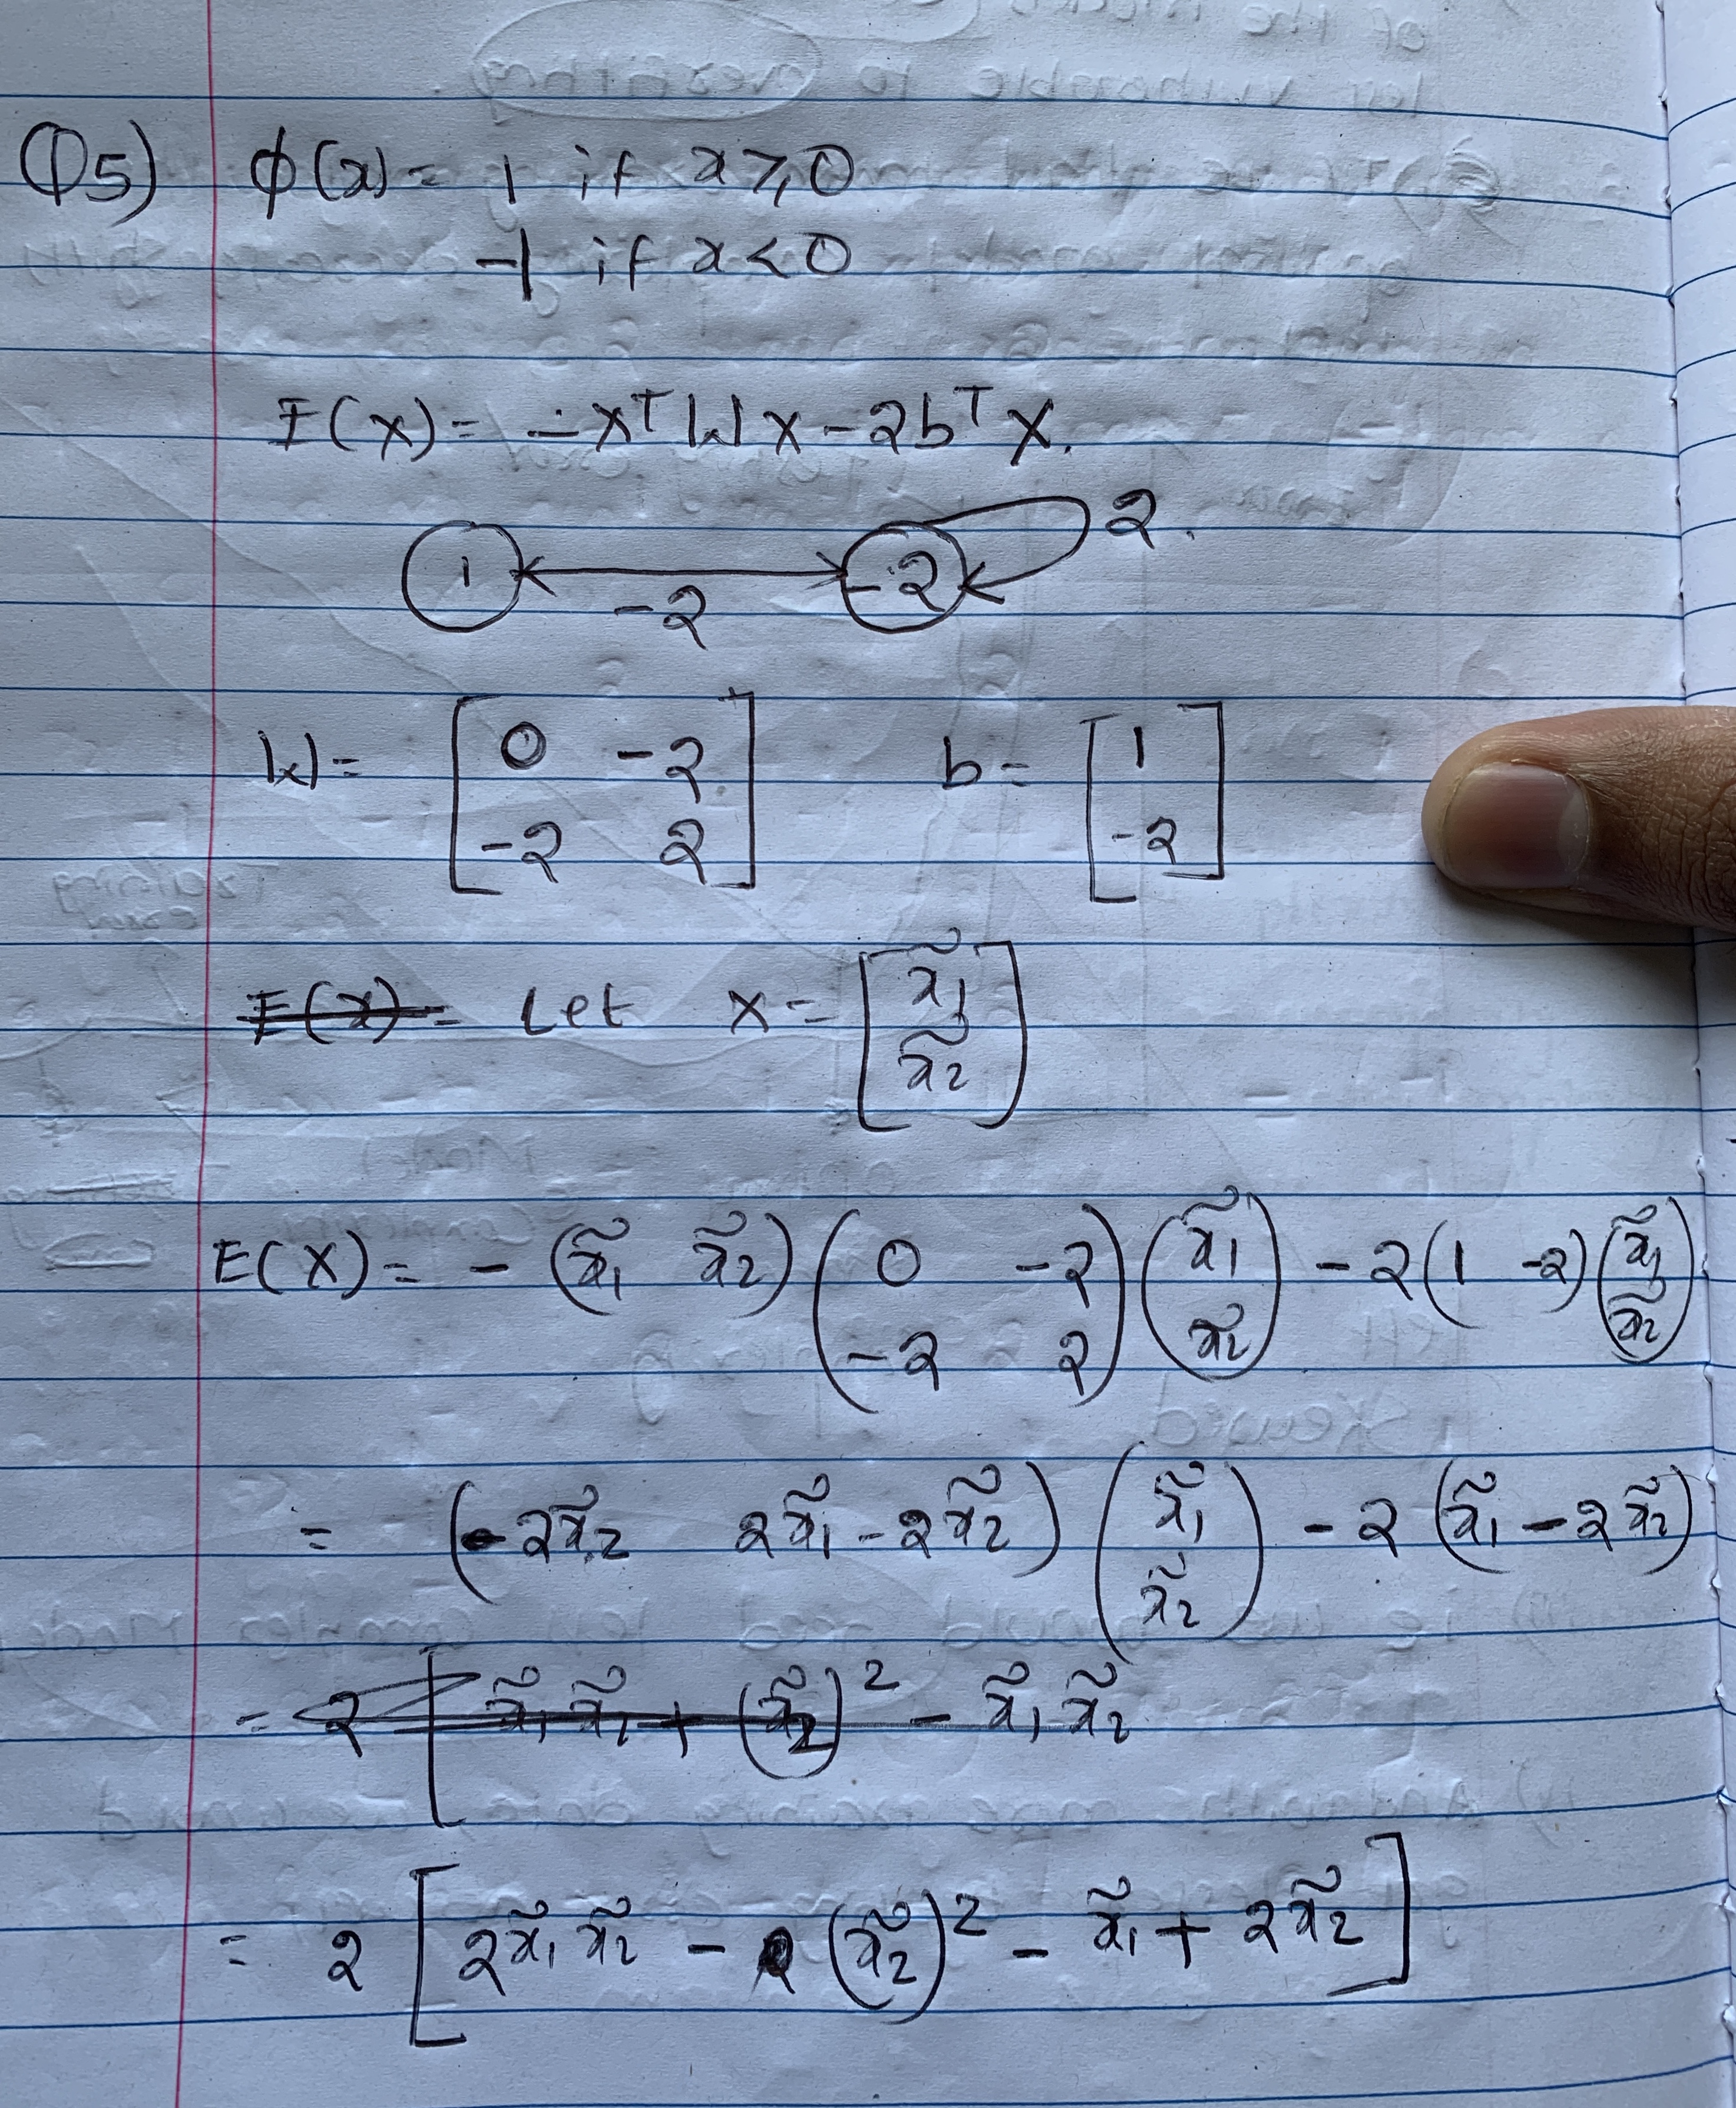 Q5) ϕ(x) = 1 if x ≥ 0
-1 if x < 0
E(X) = -X^T W X - 2b^T X.
1 -2 -2 2.
W = [0 -2; -2 2] b = [1; -2]
E(x) = Let X = [x̃1; x̃2]
E(X) = - (x̃1 x̃2) (0 -2; -2 2) (x̃1; x̃2) - 2 (1 -2) (x̃1; x̃2)
= (-2x̃2 2x̃1 - 2x̃2) (x̃1; x̃2) - 2 (x̃1 - 2x̃2)
= 2 [x̃1 x̃2 + (x̃2)^2 - x̃1 x̃2
= 2 [2x̃1 x̃2 - (x̃2)^2 - x̃1 + 2x̃2]